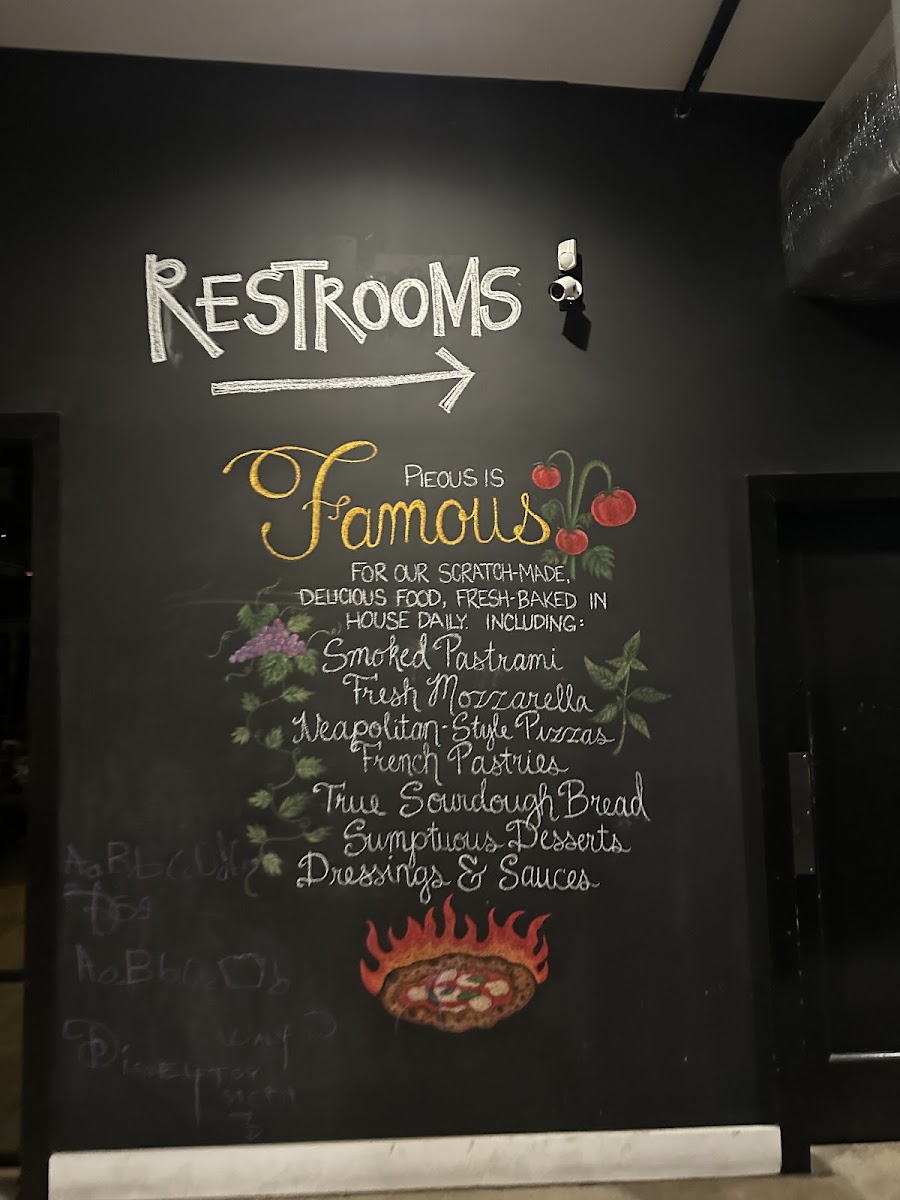 RESTROOMS
PIEOUS IS
Famous
FOR OUR SCRATCH-MADE,
DELICIOUS FOOD, FRESH-BAKED IN
HOUSE DAILY. INCLUDING:
Smoked Pastrami
Fresh Mozzarella
Neapolitan-Style Pizzas
French Pastries
True Sourdough Bread
Sumptuous Desserts
Dressings & Sauces